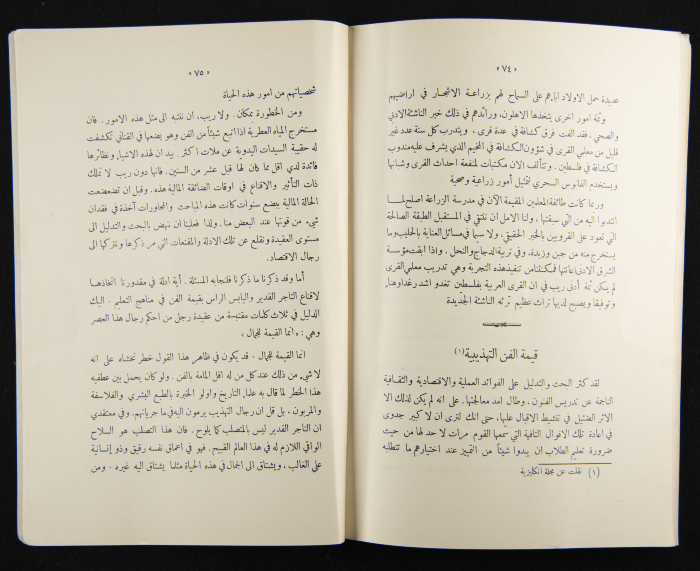 «٧٤»
عديدة حمل الاولاد اباءهم على السماح لهم بزراعة الاشجار في اراضيهم
وثمة امور اخرى يتخذها الاهلون، ورائدهم في ذلك خير الناشئة الادبي
والصحي، فقد الفت فرق كشافة في عدة قرى، ويتدرب كل سنة عدد غير
قليل من معلمي القرى في شؤون الكشافة في المخيم الذي يشرف عليه مندوب
الكشافة في فلسطين. وتتألف الان مكتبات لمنفعة احداث القرى وشبانها
ويستخدم الفانوس السحري لتمثيل أمور زراعية وصحية
وربما كانت طائفة المعلمين المقيمة الآن في مدرسة الزراعة اصلح لما
انتدبوا اليه من التي سبقتها. ولنا الامل ان ننتقي في المستقبل الطبقة الصالحة
التي تعود على القرويين بالخير الحقيقي، ولا سيما في مسائل العناية بالحليب وما
يستخرج منه من جبن وزبدة، وفي تربية الدجاج والنحل. واذا ابقت مؤسسة
الشرق الادنى اعانتها فمكنتنا من تنفيذ هذه التجربة وهي تدريب معلمي القرى
لم يكن ثمة أدنى ريب في ان القرى العربية بفلسطين تغدو اشد رغدا وهناء
وتوفيقا ويصبح لديها تراث عظيم ترثه الناشئة الجديدة
قيمة الفن التهذيبية (١)
لقد كثر البحث والتدليل على الفوائد العملية والاقتصادية والثقافية
الناجمة عن تدريس الفنون، وطال امد معالجتها. على انه لم يكن لذلك الا
الاثر الضئيل في تنشيط الاقبال عليها. حتى انك لترى ان لا كبير جدوى
في اعادة تلك الاقوال التافهة التي سمعها القوم مرات لا حد لها من حيث
ضرورة تعليم الطلاب ان يبدوا شيئاً من التمييز عند اختيارهم ما تتطلبه
(١) نقلت عن مجلة انكليزية
«٧٥»
شخصياتهم من امور هذه الحياة
ومن الخطورة بمكان. ولا ريب، ان ننتبه الى مثل هذه الامور. فان
مستخرج المياه العطرية اذا اتبع شيئاً من الفن وهو يضعها في القناني تكشفت
له حقيبة السيدات اليدوية عن ملات اكثر. بيد ان لهذه الاشياء ونظائرها
فائدة لدي اقل مما كان لها قبل عشر من السنين. فانها دون ريب لا تملك
ذات التأثير والاقناع في اوقات الضائقة المالية هذه. وقبل ان تضعضعت
الحالة المالية ببضع سنوات كانت هذه المباحث والمحاورات آخذة في فقدان
شيء من قوتها عند البعض منا. ولذا فعلينا ان ننهض بالبحث والتدليل الى
مستوى العقيدة ونقلع عن تلك الادلة والمقنعات التي مر ذكرها ونتركها الى
رجال الاقتصاد.
أما وقد ذكرنا ما ذكرنا فلنجابه المسئلة. أية ادلة في مقدورنا اتخاذها
لاقناع التاجر القدير واليابس الراس بقيمة الفن في مناهج التعليم. اليك
الدليل في ثلاث كلمات مقتبسة من عقيدة رجل من احكم رجال هذا العصر
وهي: «انما القيمة للجمال»
انما القيمة للجمال. قد يكون في ظاهر هذا القول خطر نخشاه على انه
لا شيء من ذلك عند كل من له اقل المامة بالفن. ولو كان يحمل بين عطفيه
هذا الخطر لما قال به علماء التاريخ واولو الخبرة بالطبع البشري والفلاسفة
والمربون، بل قل ان رجال التهذيب يرمون اليه في ما جرياتهم. وفي معتقدي
ان التاجر القدير ليس بالمتصلب كما يلوح. فان هذا التصلب هو السلاح
الواقي اللازم له في هذا العالم القيم. فهو في اعماق نفسه رقيق وذو إنسانية
على الغالب، ويشتاق الى الجمال في هذه الحياة مثلما يشتاق اليه غيره. ومن